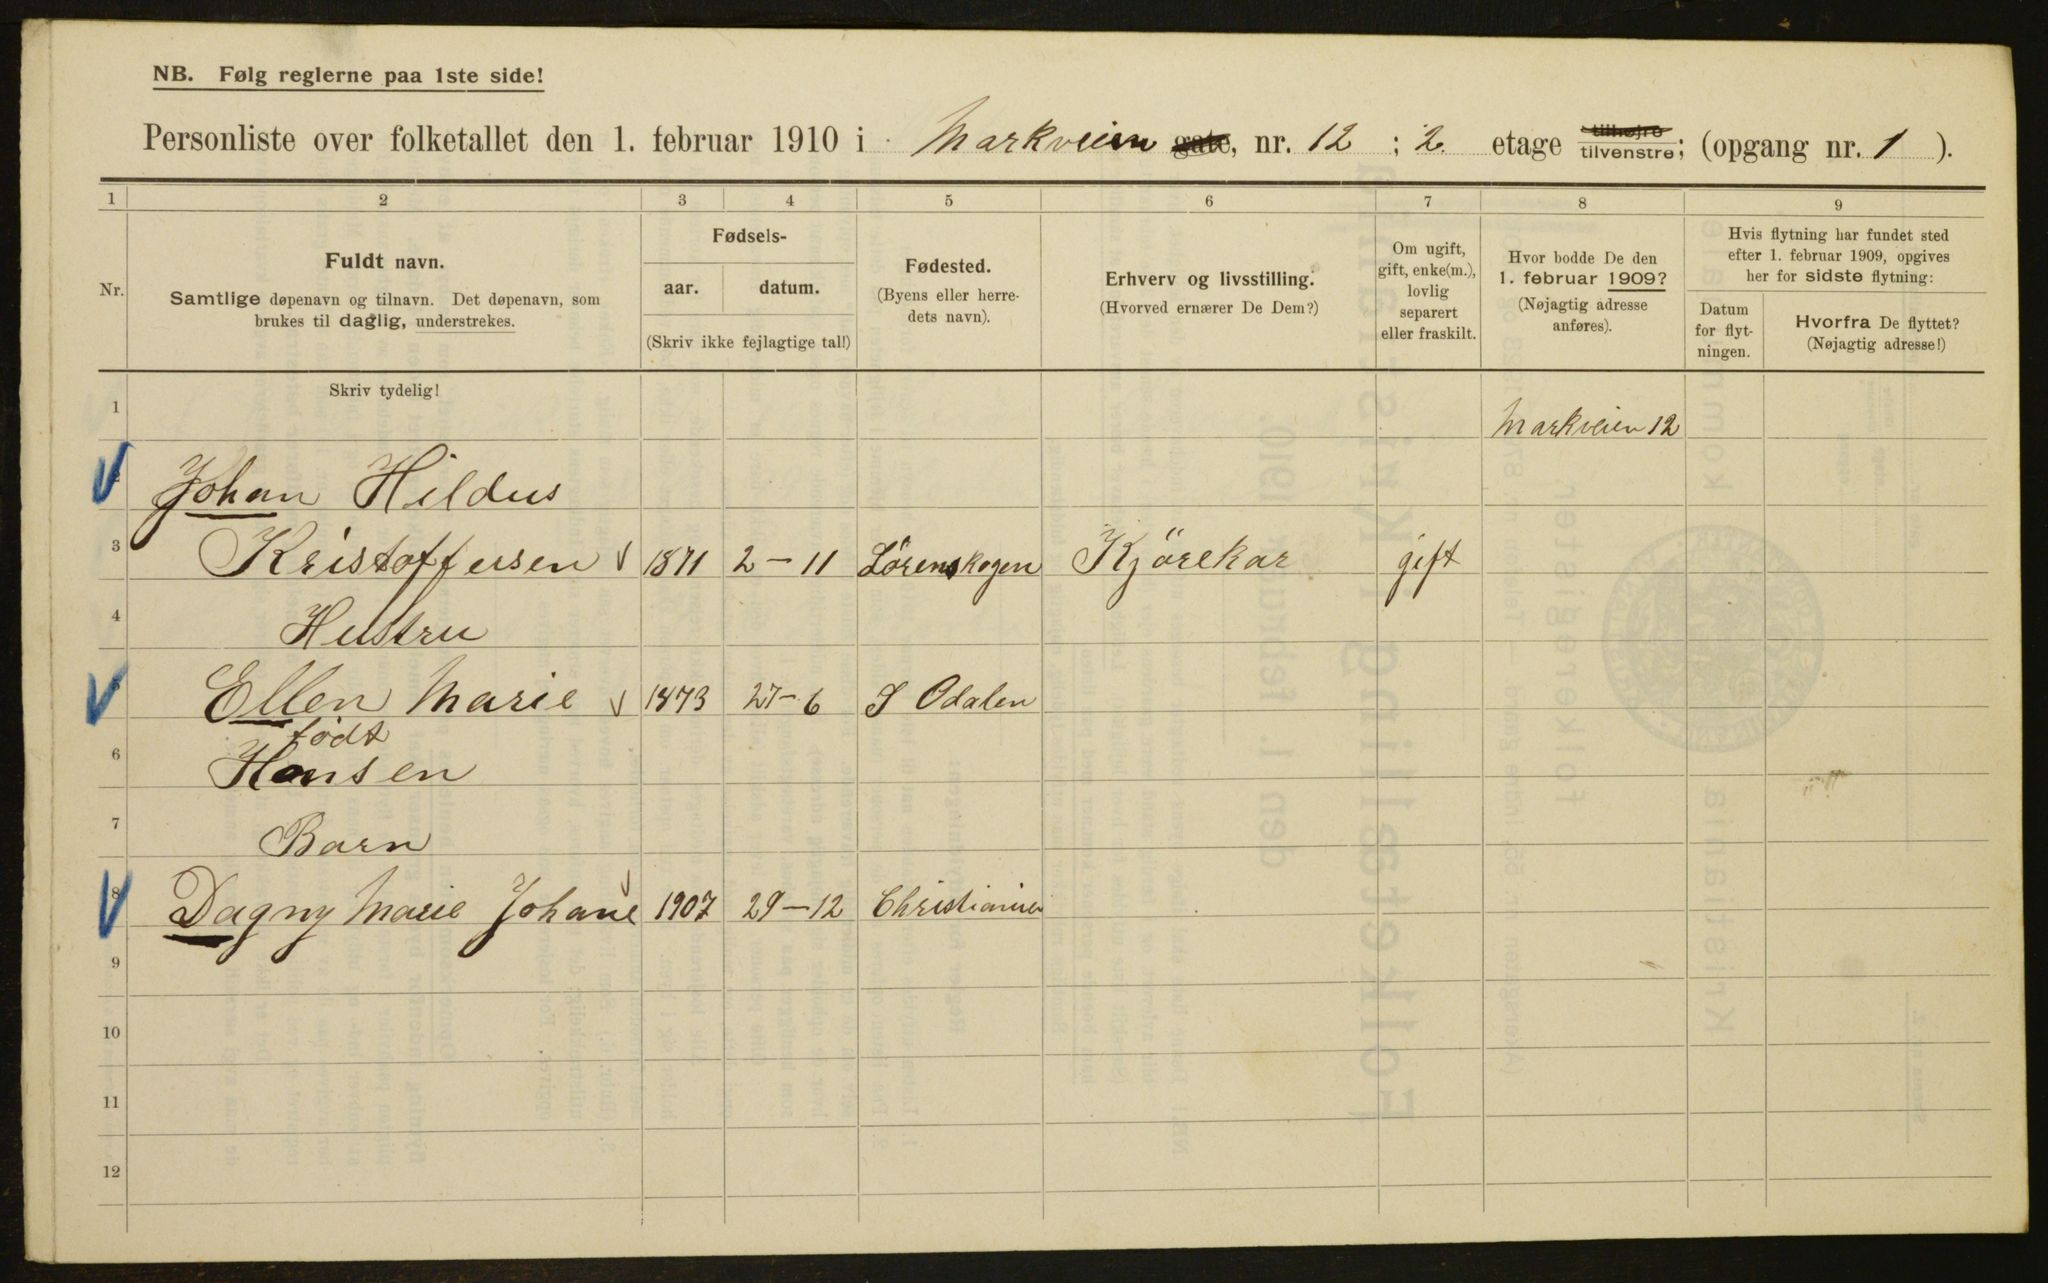 NB. Følg reglerne paa 1ste side!
Personliste over folketallet den 1. februar 1910 i Markveien gate, nr. 12 ; 2. etage tilhøjre tilvenstre; (opgang nr. 1 ).
1 2 3 4 5 6 7 8 9
Nr.
Fuldt navn.
Samtlige døpenavn og tilnavn. Det døpenavn, som
brukes til daglig, understrekes.
Fødsels-
aar. datum.
(Skriv ikke fejlagtige tal!)
Fødested.
(Byens eller herre-
dets navn).
Erhverv og livsstilling.
(Hvorved ernærer De Dem?)
Om ugift,
gift, enke(m.),
lovlig
separert
eller fraskilt.
Hvor bodde De den
1. februar 1909?
(Nøjagtig adresse
anføres).
Hvis flytning har fundet sted
efter 1. februar 1909, opgives
her for sidste flytning:
Datum
for flyt-
ningen.
Hvorfra De flyttet?
(Nøjagtig adresse!)
Skriv tydelig!
1 Markveien 12
2 Johan Hildus
3 Kristoffersen 1871 2-11 Lörenskogen Kjörekar gift
4 Hustru
5 Ellen Marie 1873 27-6 S Odalen
født
6 Hansen
7 Barn
8 Dagny Marie Johane 1907 29-12 Christiania
9
10
11
12